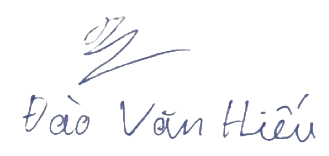 Đào Văn Hiếu